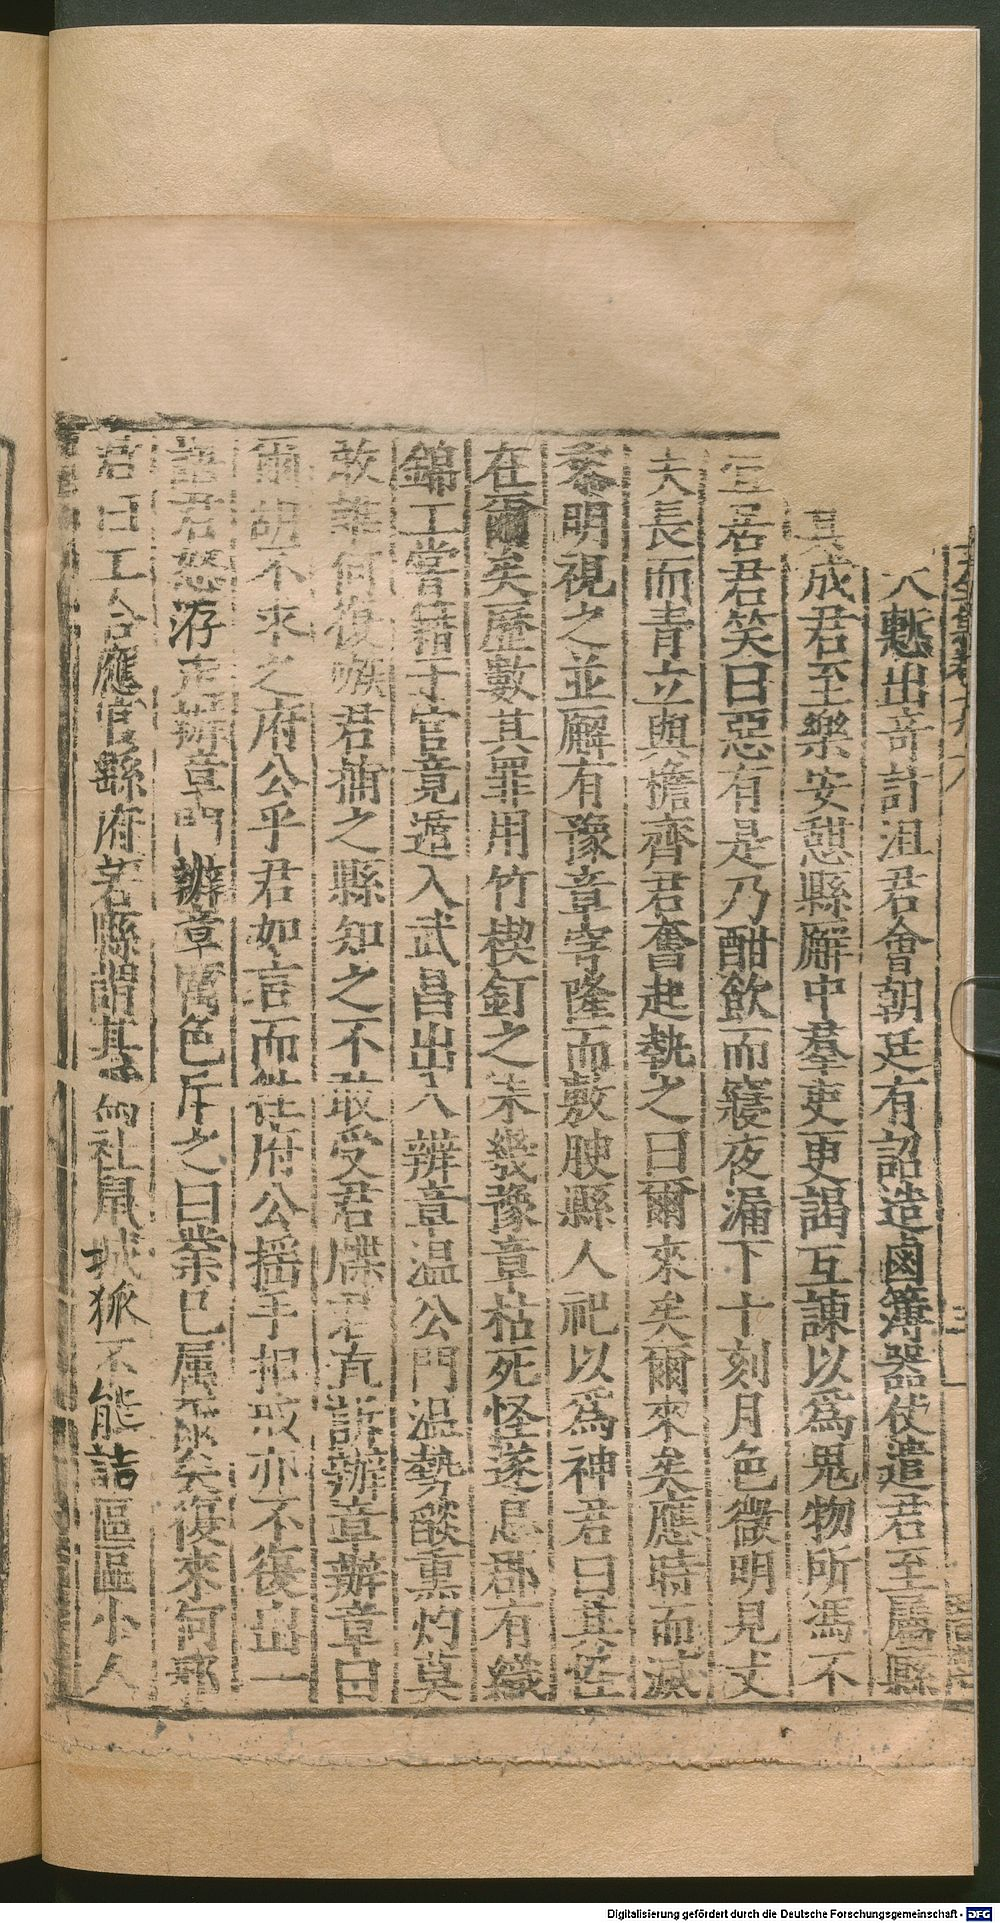 大慙出奇計沮君會朝廷有詔造鹵簿器仗遣君至屬縣
其成君至樂安憇縣廨中羣吏更謁互諫以爲鬼物所馮不
居君笑曰惡有是乃酣飲而寢夜漏下十刻月色微明見丈
夫長而青立與擔齊君奮起執之曰爾來矣爾來矣應時而滅
黎明視之並廨有豫章穹隆而敷腴縣人祀以爲神君曰其怪
在爾矣歷數其罪用竹楔釘之未幾豫章枯死怪遂息郡有織
錦工當籍于官竟遁入武昌出入辨章温公門温勢燄熏灼莫
敢誰何復嗾君捕之縣知之不敢受君牒君直訴辦章辦章曰
爾胡不來之府公乎君如言而往府公揺手把 亦不復出一
語君怒游走辦章門辦章厲色斥之曰業已屬 矣復來何耶
君曰工合應官縣府若縣謂其 社鼠城狐不能詰區區小人
三
Digitalisierung gefördert durch die Deutsche Forschungsgemeinschaft - DFG